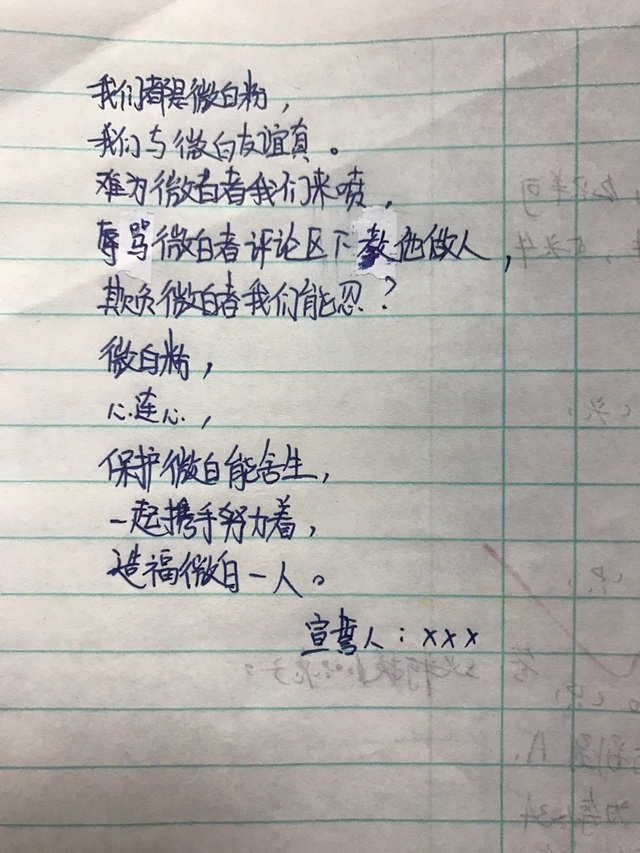 我们都是微白粉，
我们与微白友谊真。
难为微白者我们来喷，
辱骂微白者评论区下教他做人，
欺负微白者我们能忍？
微白粉，
心连心，
保护微白能舍生，
一起携手努力着，
造福微白一人。
宣誓人：xxx